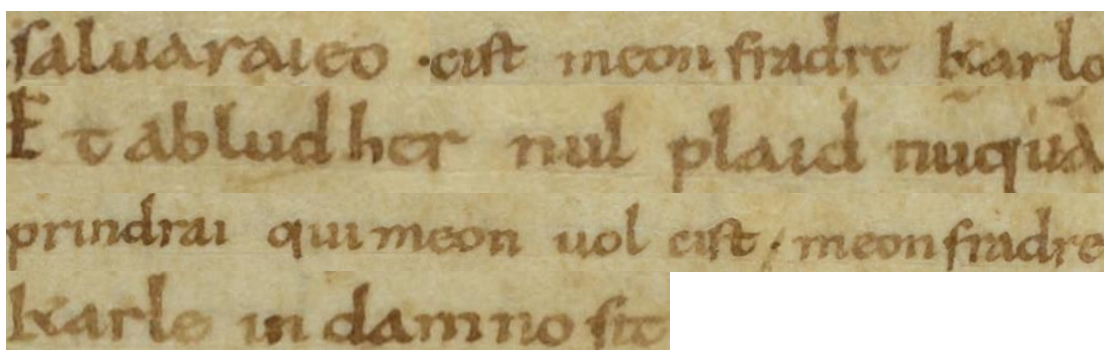 saluaraieo .cist meon fradre karlo
Et abludher nul plaid nuquã
prindrai qui meon uol cist / meon fradre
karle in damno sit